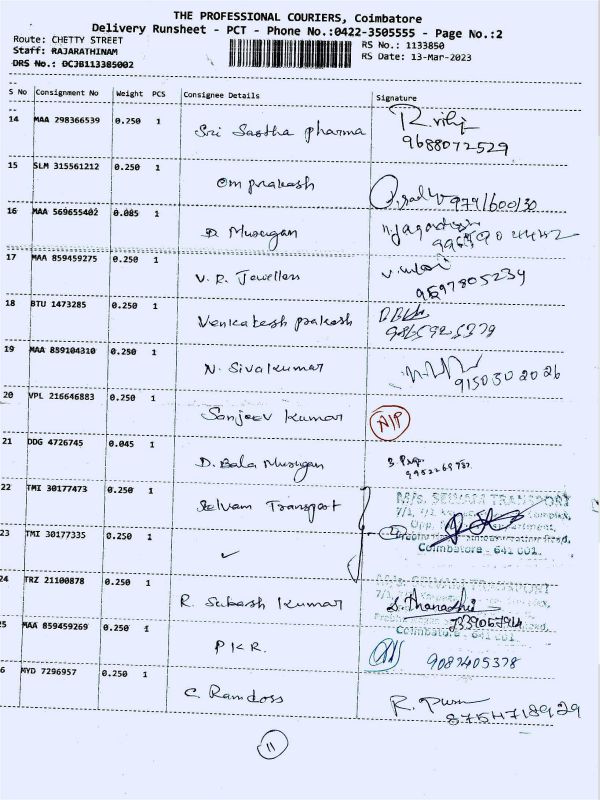 THE PROFESSIONAL COURIERS, Coimbatore
Delivery Runsheet - PCT - Phone No.:0422-3505555 - Page No.:2
Route: CHETTY STREET
RS No.: 1133850
Staff: RAJARATHINAM
RS Date: 13-Mar-2023
DRS No.: DCJB113385002
S No Consignment No Weight PCS Consignee Details Signature
14 MAA 298366539 0.250 1 Sri Sastha pharma
9688072529
15 SLM 315561212 0.250 1 Om prakash
9791600130
16 MAA 569655402 0.085 1 D. Murugan
17 MAA 859459275 0.250 1 V. R. Jewellers
9597805234
18 BTU 1473285 0.250 1 Venkatesh prakash
19 MAA 859104310 0.250 1 N. Sivakumar
9150302026
20 VPL 216646883 0.250 1 Sanjeev Kumar A/P
21 DDG 4726745 0.045 1 D. Bala Murugan
22 TMI 30177473 0.250 1 Selvam Transport
M/s. SELVAM TRANSPORT
Coimbatore - 641 001.
23 TMI 30177335 0.250 1 ✓
24 TRZ 21100878 0.250 1 R. Subash Kumar
M/s. SELVAM TRANSPORT
Coimbatore - 641 001.
25 MAA 859459269 0.250 1 P K R.
9087405378
6 MYD 7296957 0.250 1 C. Ramdoss
8754718929
11